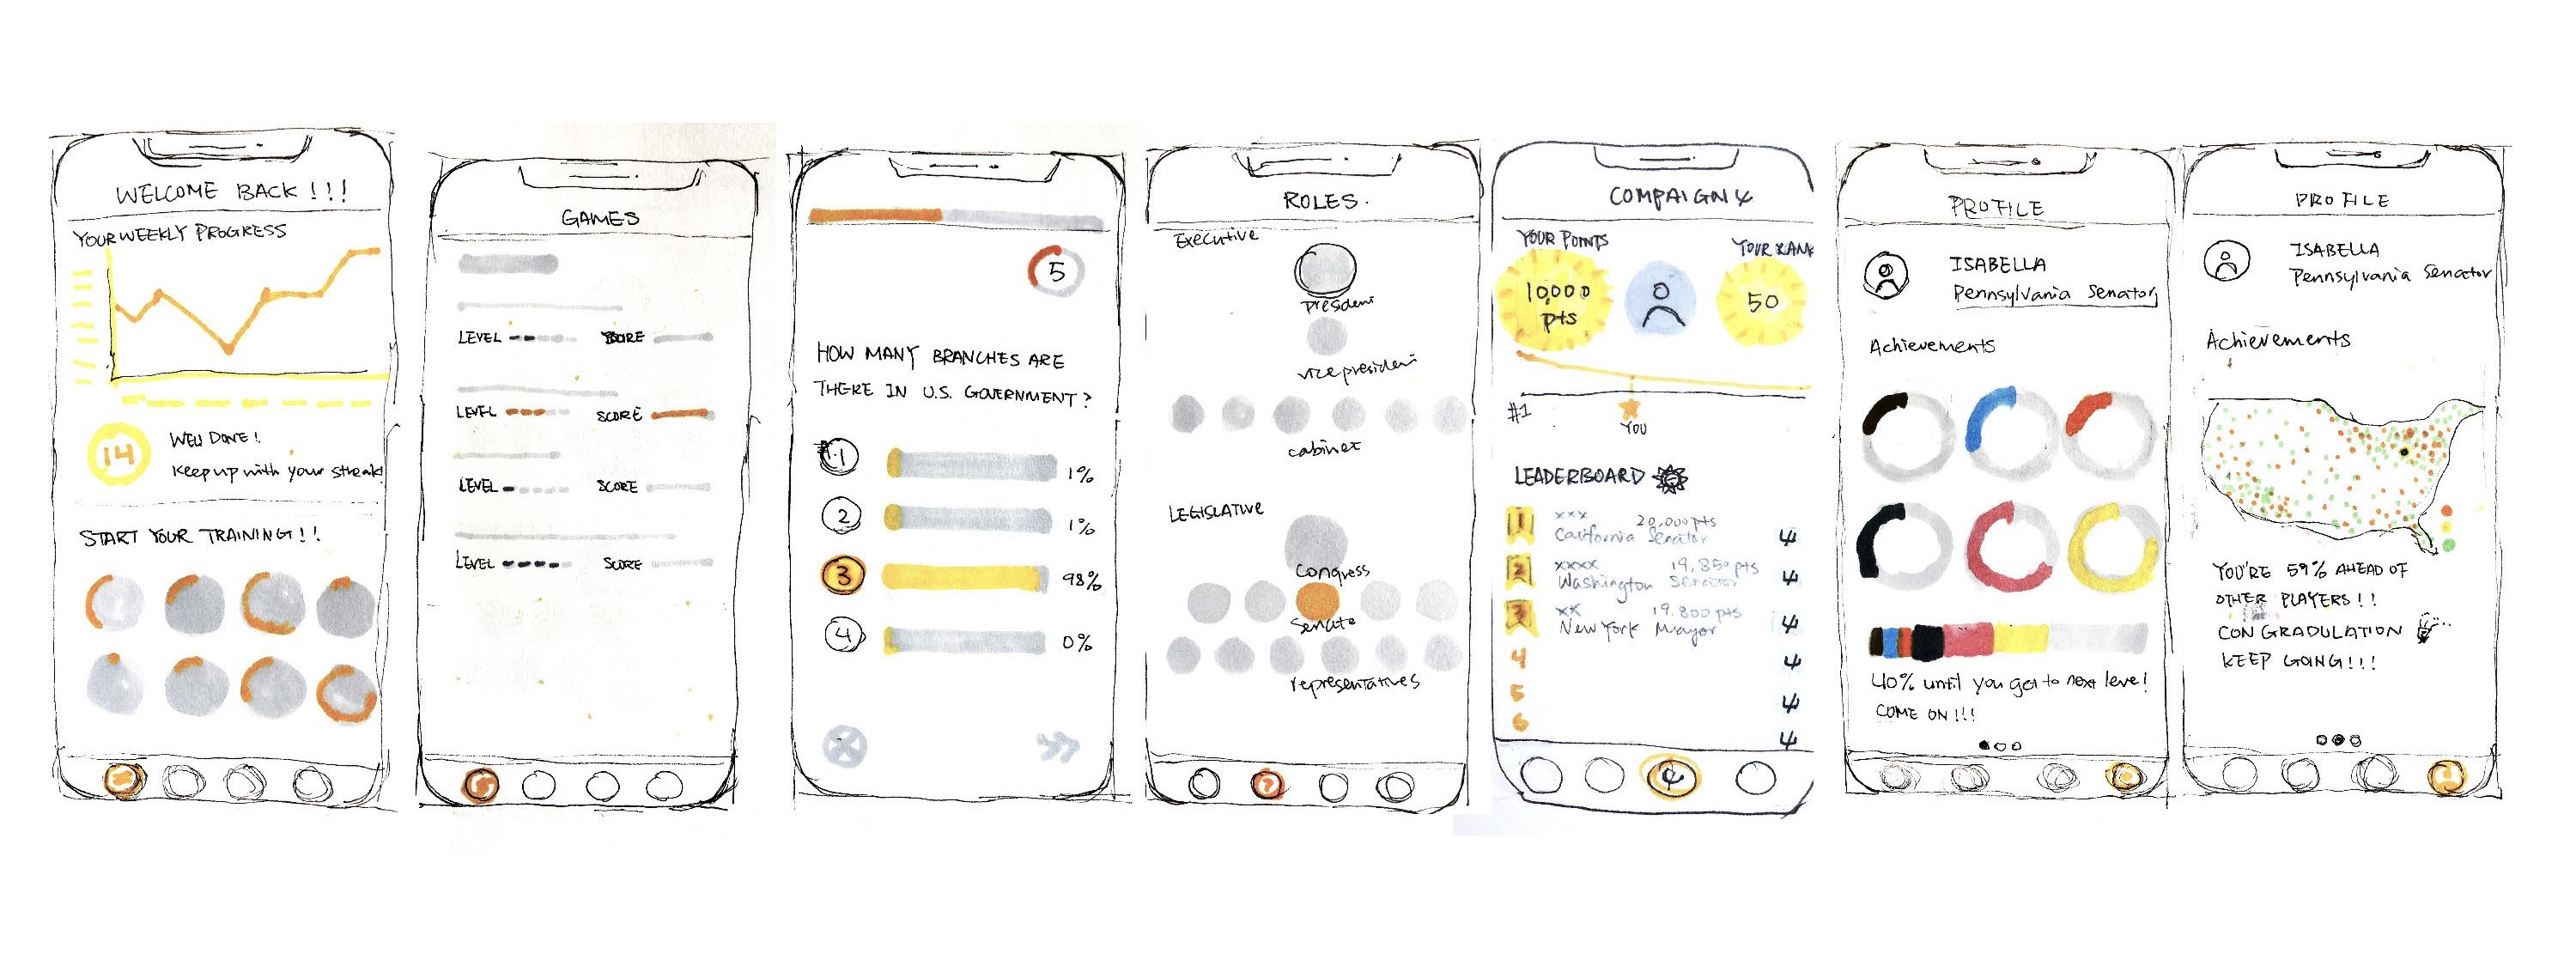 WELCOME BACK!!!
YOUR WEEKLY PROGRESS
14
WELL DONE!
Keep up with your streak!
START YOUR TRAINING!!
GAMES
LEVEL SCORE
LEVEL SCORE
LEVEL SCORE
LEVEL SCORE
5
HOW MANY BRANCHES ARE
THERE IN U.S. GOVERNMENT?
1 1%
2 1%
3 98%
4 0%
ROLES.
Executive
president
vice president
cabinet
LEGISLATIVE
Congress
Senate
representatives
COMPAIGN
YOUR POINTS
YOUR RANK
10,000
pts
50
#1
YOU
LEADERBOARD
1 xxx 20,000 pts
California Senator
2 xxxx 19,850 pts
Washington Senator
3 xx 19,800 pts
New York Mayor
4
5
6
PROFILE
ISABELLA
Pennsylvania Senator
Achievements
40% until you get to next level!
COME ON!!!
PROFILE
ISABELLA
Pennsylvania Senator
Achievements
YOU'RE 59% AHEAD OF
OTHER PLAYERS!!
CONGRADULATION
KEEP GOING!!!